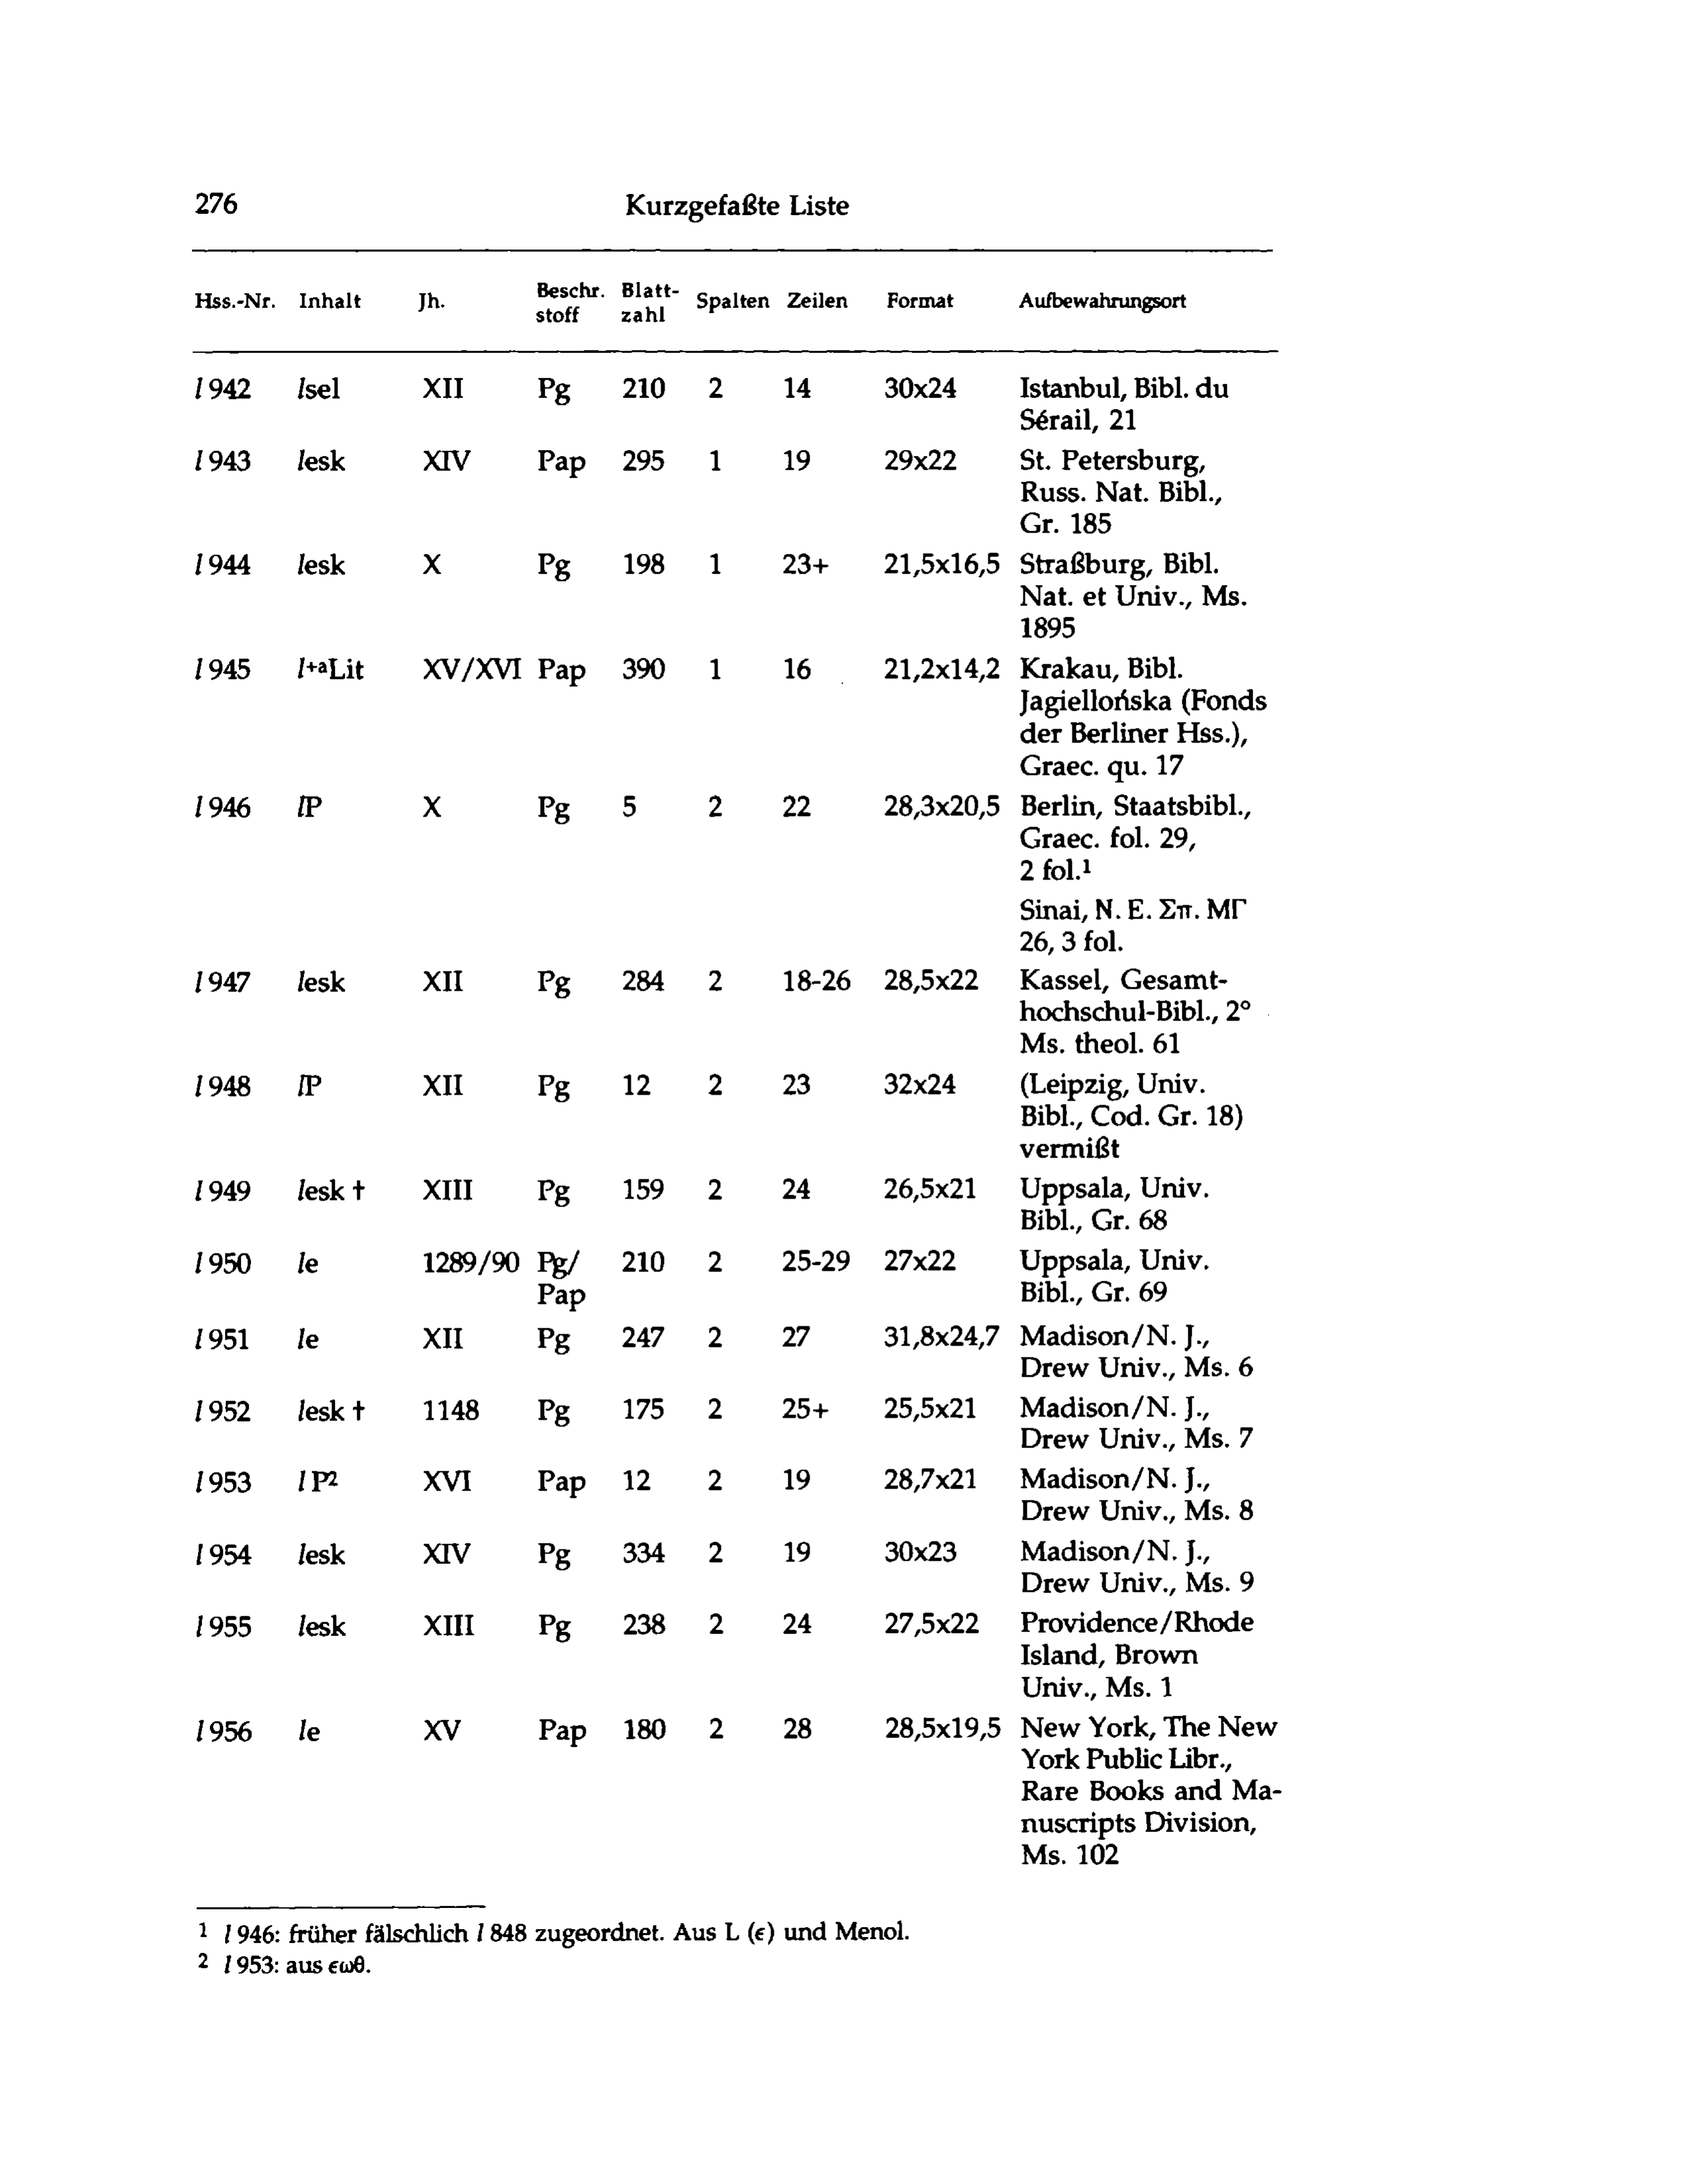 276 Kurzgefaßte Liste
Hss.-Nr. Inhalt Jh. Beschr. stoff Blatt- zahl Spalten Zeilen Format Aufbewahrungsort
l 942 lsel XII Pg 210 2 14 30x24 Istanbul, Bibl. du
Sérail, 21
l 943 lesk XIV Pap 295 1 19 29x22 St. Petersburg,
Russ. Nat. Bibl.,
Gr. 185
l 944 lesk X Pg 198 1 23+ 21,5x16,5 Straßburg, Bibl.
Nat. et Univ., Ms.
1895
l 945 l+aLit XV/XVI Pap 390 1 16 21,2x14,2 Krakau, Bibl.
Jagiellońska (Fonds
der Berliner Hss.),
Graec. qu. 17
l 946 lP X Pg 5 2 22 28,3x20,5 Berlin, Staatsbibl.,
Graec. fol. 29,
2 fol.¹
Sinai, N. E. Σπ. ΜΓ
26, 3 fol.
l 947 lesk XII Pg 284 2 18-26 28,5x22 Kassel, Gesamt-
hochschul-Bibl., 2°
Ms. theol. 61
l 948 lP XII Pg 12 2 23 32x24 (Leipzig, Univ.
Bibl., Cod. Gr. 18)
vermißt
l 949 lesk † XIII Pg 159 2 24 26,5x21 Uppsala, Univ.
Bibl., Gr. 68
l 950 le 1289/90 Pg/ 210 2 25-29 27x22 Uppsala, Univ.
Pap Bibl., Gr. 69
l 951 le XII Pg 247 2 27 31,8x24,7 Madison/N. J.,
Drew Univ., Ms. 6
l 952 lesk † 1148 Pg 175 2 25+ 25,5x21 Madison/N. J.,
Drew Univ., Ms. 7
l 953 l P² XVI Pap 12 2 19 28,7x21 Madison/N. J.,
Drew Univ., Ms. 8
l 954 lesk XIV Pg 334 2 19 30x23 Madison/N. J.,
Drew Univ., Ms. 9
l 955 lesk XIII Pg 238 2 24 27,5x22 Providence/Rhode
Island, Brown
Univ., Ms. 1
l 956 le XV Pap 180 2 28 28,5x19,5 New York, The New
York Public Libr.,
Rare Books and Ma-
nuscripts Division,
Ms. 102
1 l 946: früher fälschlich l 848 zugeordnet. Aus L (ϵ) und Menol.
2 l 953: aus ϵωθ.